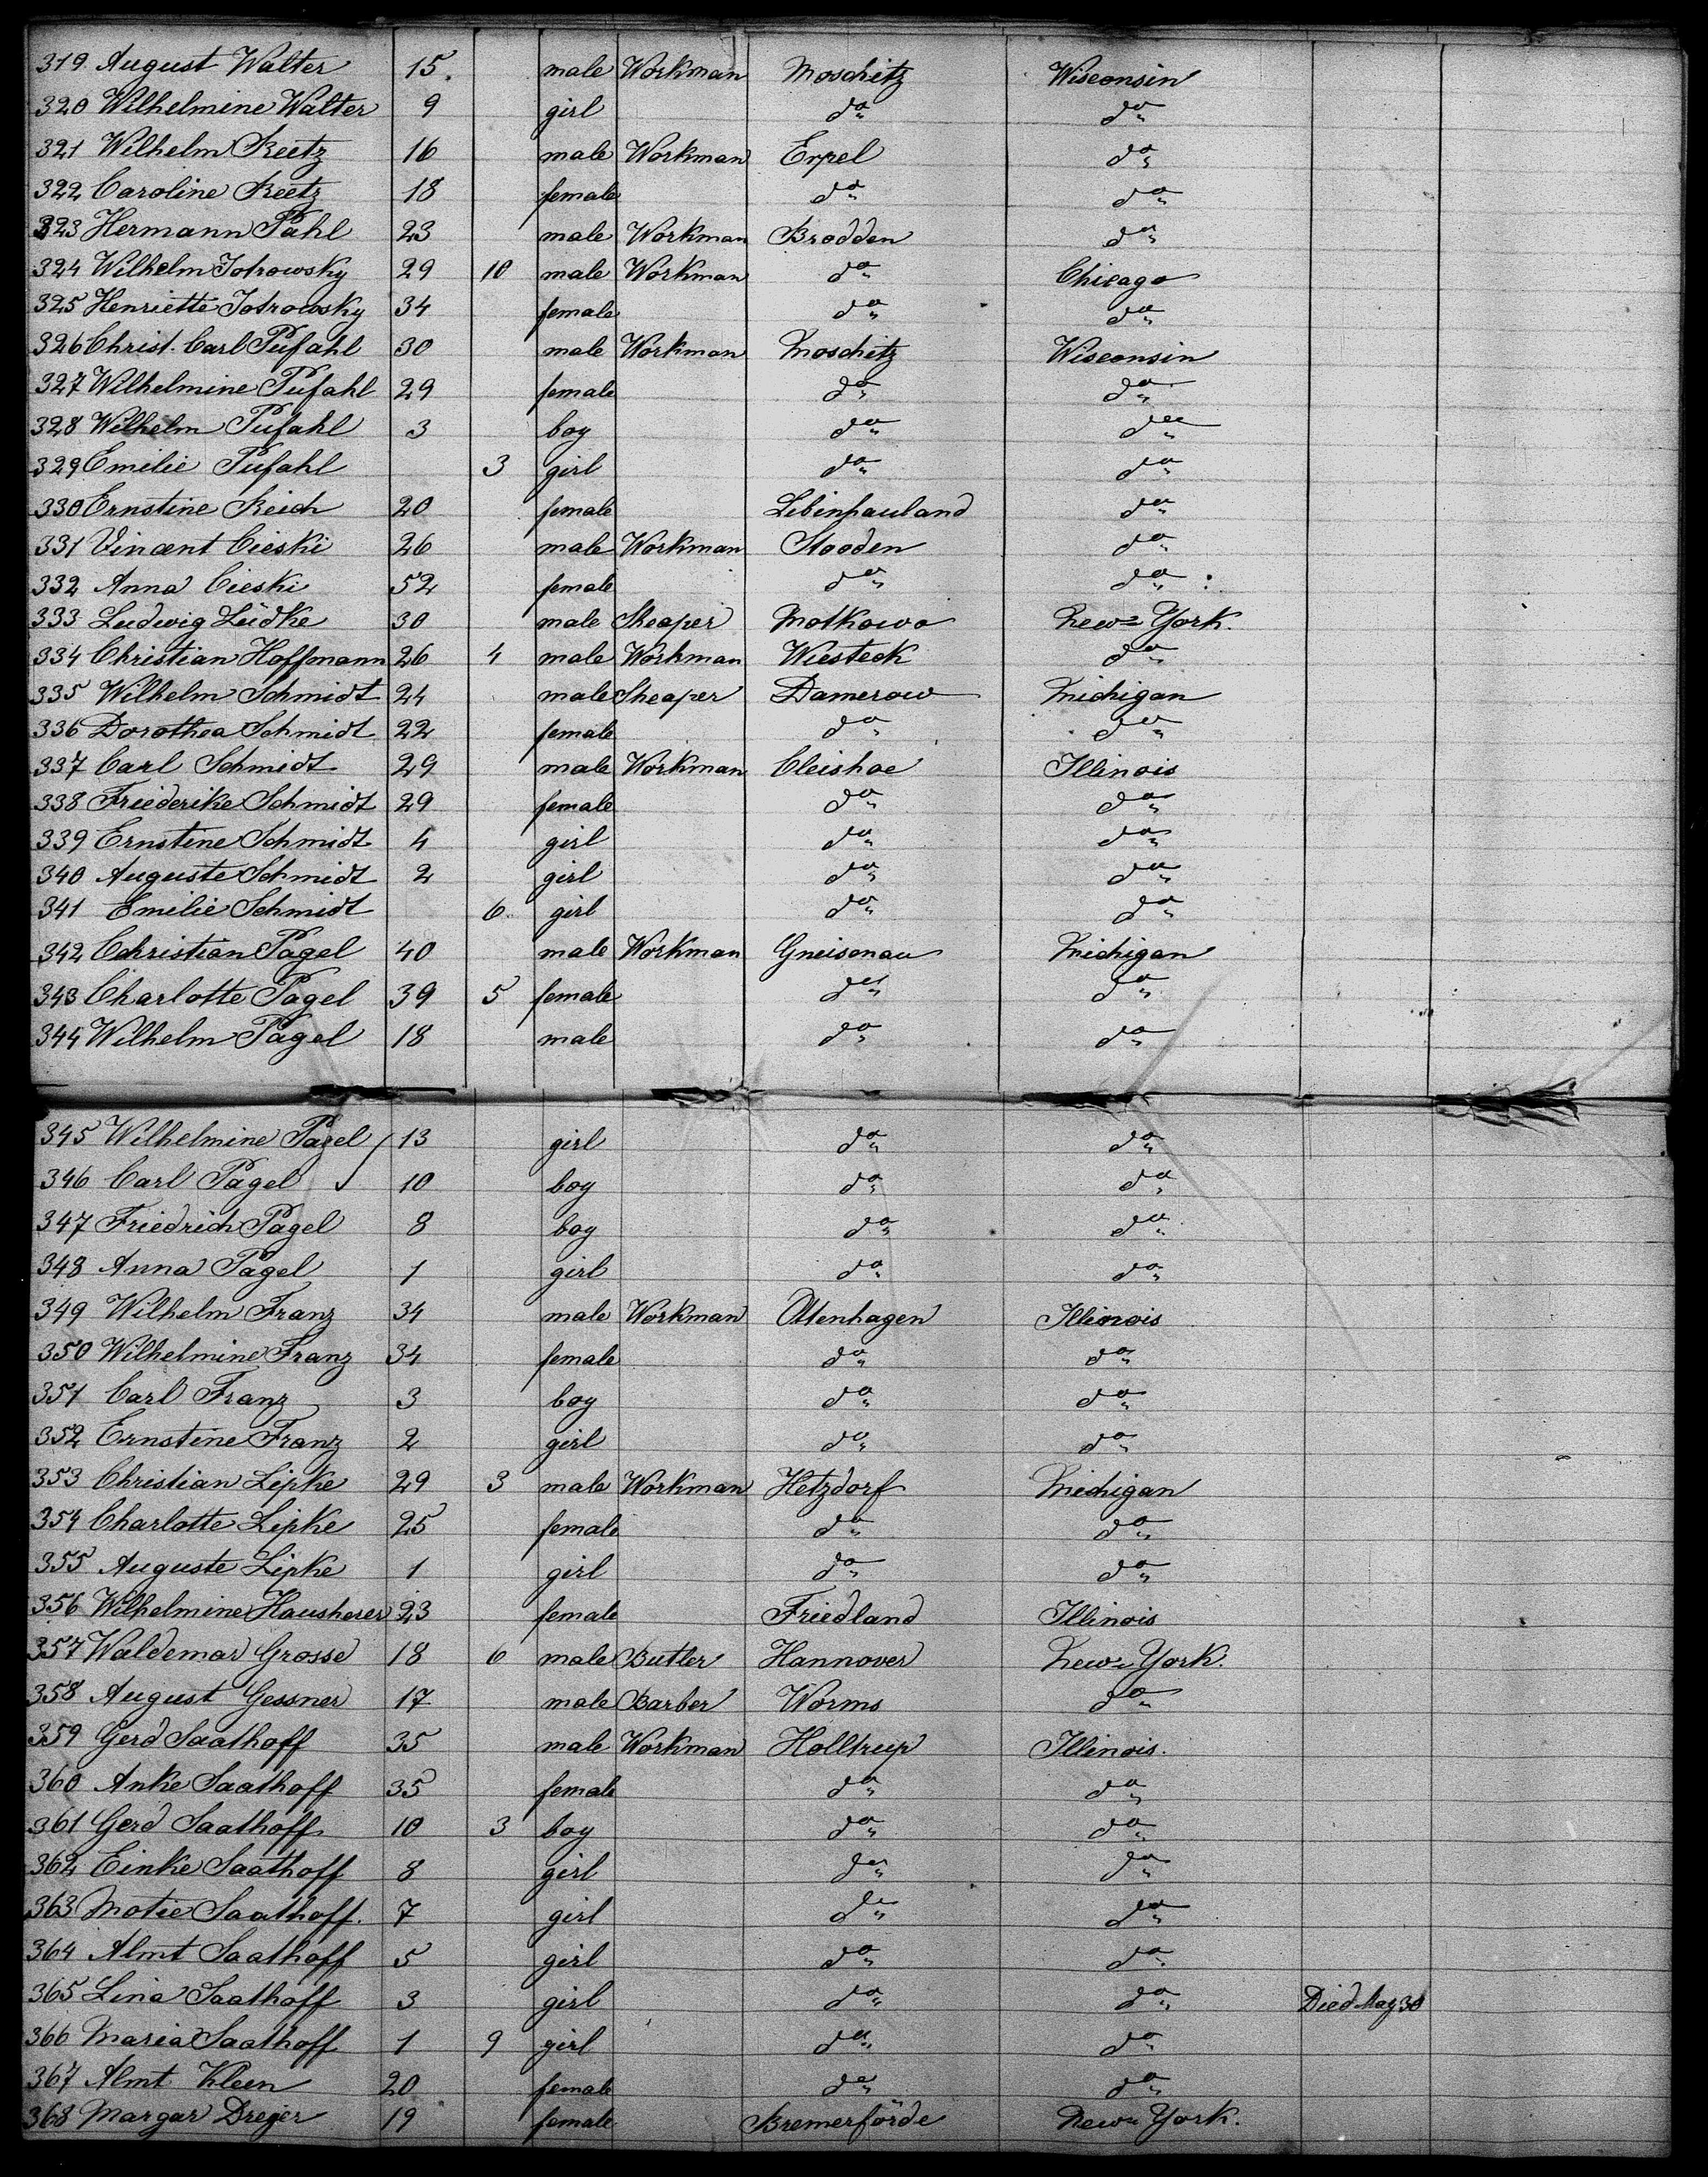 319 August Walter 15. male Workman Moschitz Wisconsin
320 Wilhelmine Walter 9 girl do do
321 Wilhelm Reetz 16 male Workman Erpel do
322 Caroline Reetz 18 female do do
323 Hermann Pahl 23 male Workman Brodden do
324 Wilhelm Jotrowsky 29 10 male Workman do Chicago
325 Henriette Jotrowsky 34 female do do
326 Christ. Carl Pufahl 30 male Workman Moschitz Wisconsin
327 Wilhelmine Pufahl 29 female do do
328 Wilhelm Pufahl 3 boy do do
329 Emilie Pufahl 3 girl do do
330 Ernstine Reich 20 female Libinhauland do
331 Vincent Cieski 26 male Workman Slooden do
332 Anna Cieski 52 female do do
333 Ludwig Lüdke 30 male Sheaper Motkowo New-York.
334 Christian Hoffmann 26 4 male Workman Wiesteck do
335 Wilhelm Schmidt 24 male Sheaper Damerow Michigan
336 Dorothea Schmidt 22 female do do
337 Carl Schmidt 29 male Workman Cleishoe Illinois
338 Friederike Schmidt 29 female do do
339 Ernstine Schmidt 4 girl do do
340 Auguste Schmidt 2 girl do do
341 Emilie Schmidt 6 girl do do
342 Christian Pagel 40 male Workman Gneisenau Michigan
343 Charlotte Pagel 39 5 female do do
344 Wilhelm Pagel 18 male do do
345 Wilhelmine Pagel 13 girl do do
346 Carl Pagel 10 boy do do
347 Friedrich Pagel 8 boy do do
348 Anna Pagel 1 girl do do
349 Wilhelm Franz 34 male Workman Altenhagen Illinois
350 Wilhelmine Franz 34 female do do
351 Carl Franz 3 boy do do
352 Ernstine Franz 2 girl do do
353 Christian Lipke 29 3 male Workman Hetzdorf Michigan
354 Charlotte Lipke 25 female do do
355 Auguste Lipke 1 girl do do
356 Wilhelmine Hausherer 23 female Friedland Illinois
357 Waldemar Grosse 18 6 male Butler Hannover New-York.
358 August Gessner 17 male Barber Worms do
359 Gerd Saathoff 35 male Workman Holltrup Illinois.
360 Anke Saathoff 35 female do do
361 Gerd Saathoff 10 3 boy do do
362 Einke Saathoff 8 girl do do
363 Motie Saathoff. 7 girl do do
364 Almt Saathoff 5 girl do do
365 Lina Saathoff 3 girl do do Died May 30
366 Maria Saathoff 1 9 girl do do
367 Almt Kleen 20 female do do
368 Margar Dreyer 19 female Bremerförde New-York.